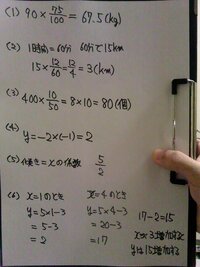 (1) 90×75/100=67.5(kg)
(2) 1時間=60分 60分で15km
15×12/60=12/4=3(km)
(3) 400×10/50=8×10=80(個)
(4) y=-2×(-1)=2
(5) 傾き=xの係数 5/2
(6) x=1のとき x=4のとき
y=5×1-3 y=5×4-3 17-2=15
=5-3 =20-3 xが3増加すると
=2 =17 yは15増加する